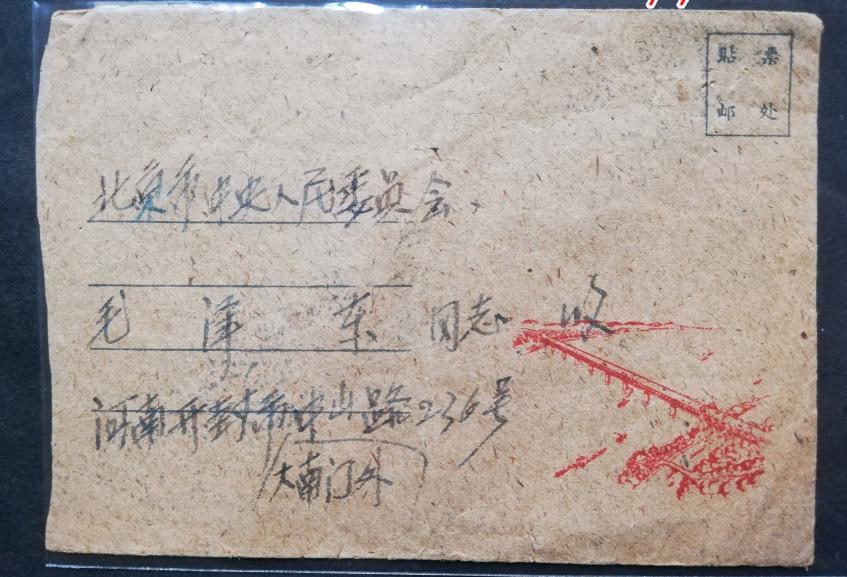 贴票
邮处
北京市中央人民委员会、
毛泽东同志 收
河南开封市中山路236号
(大南门外)